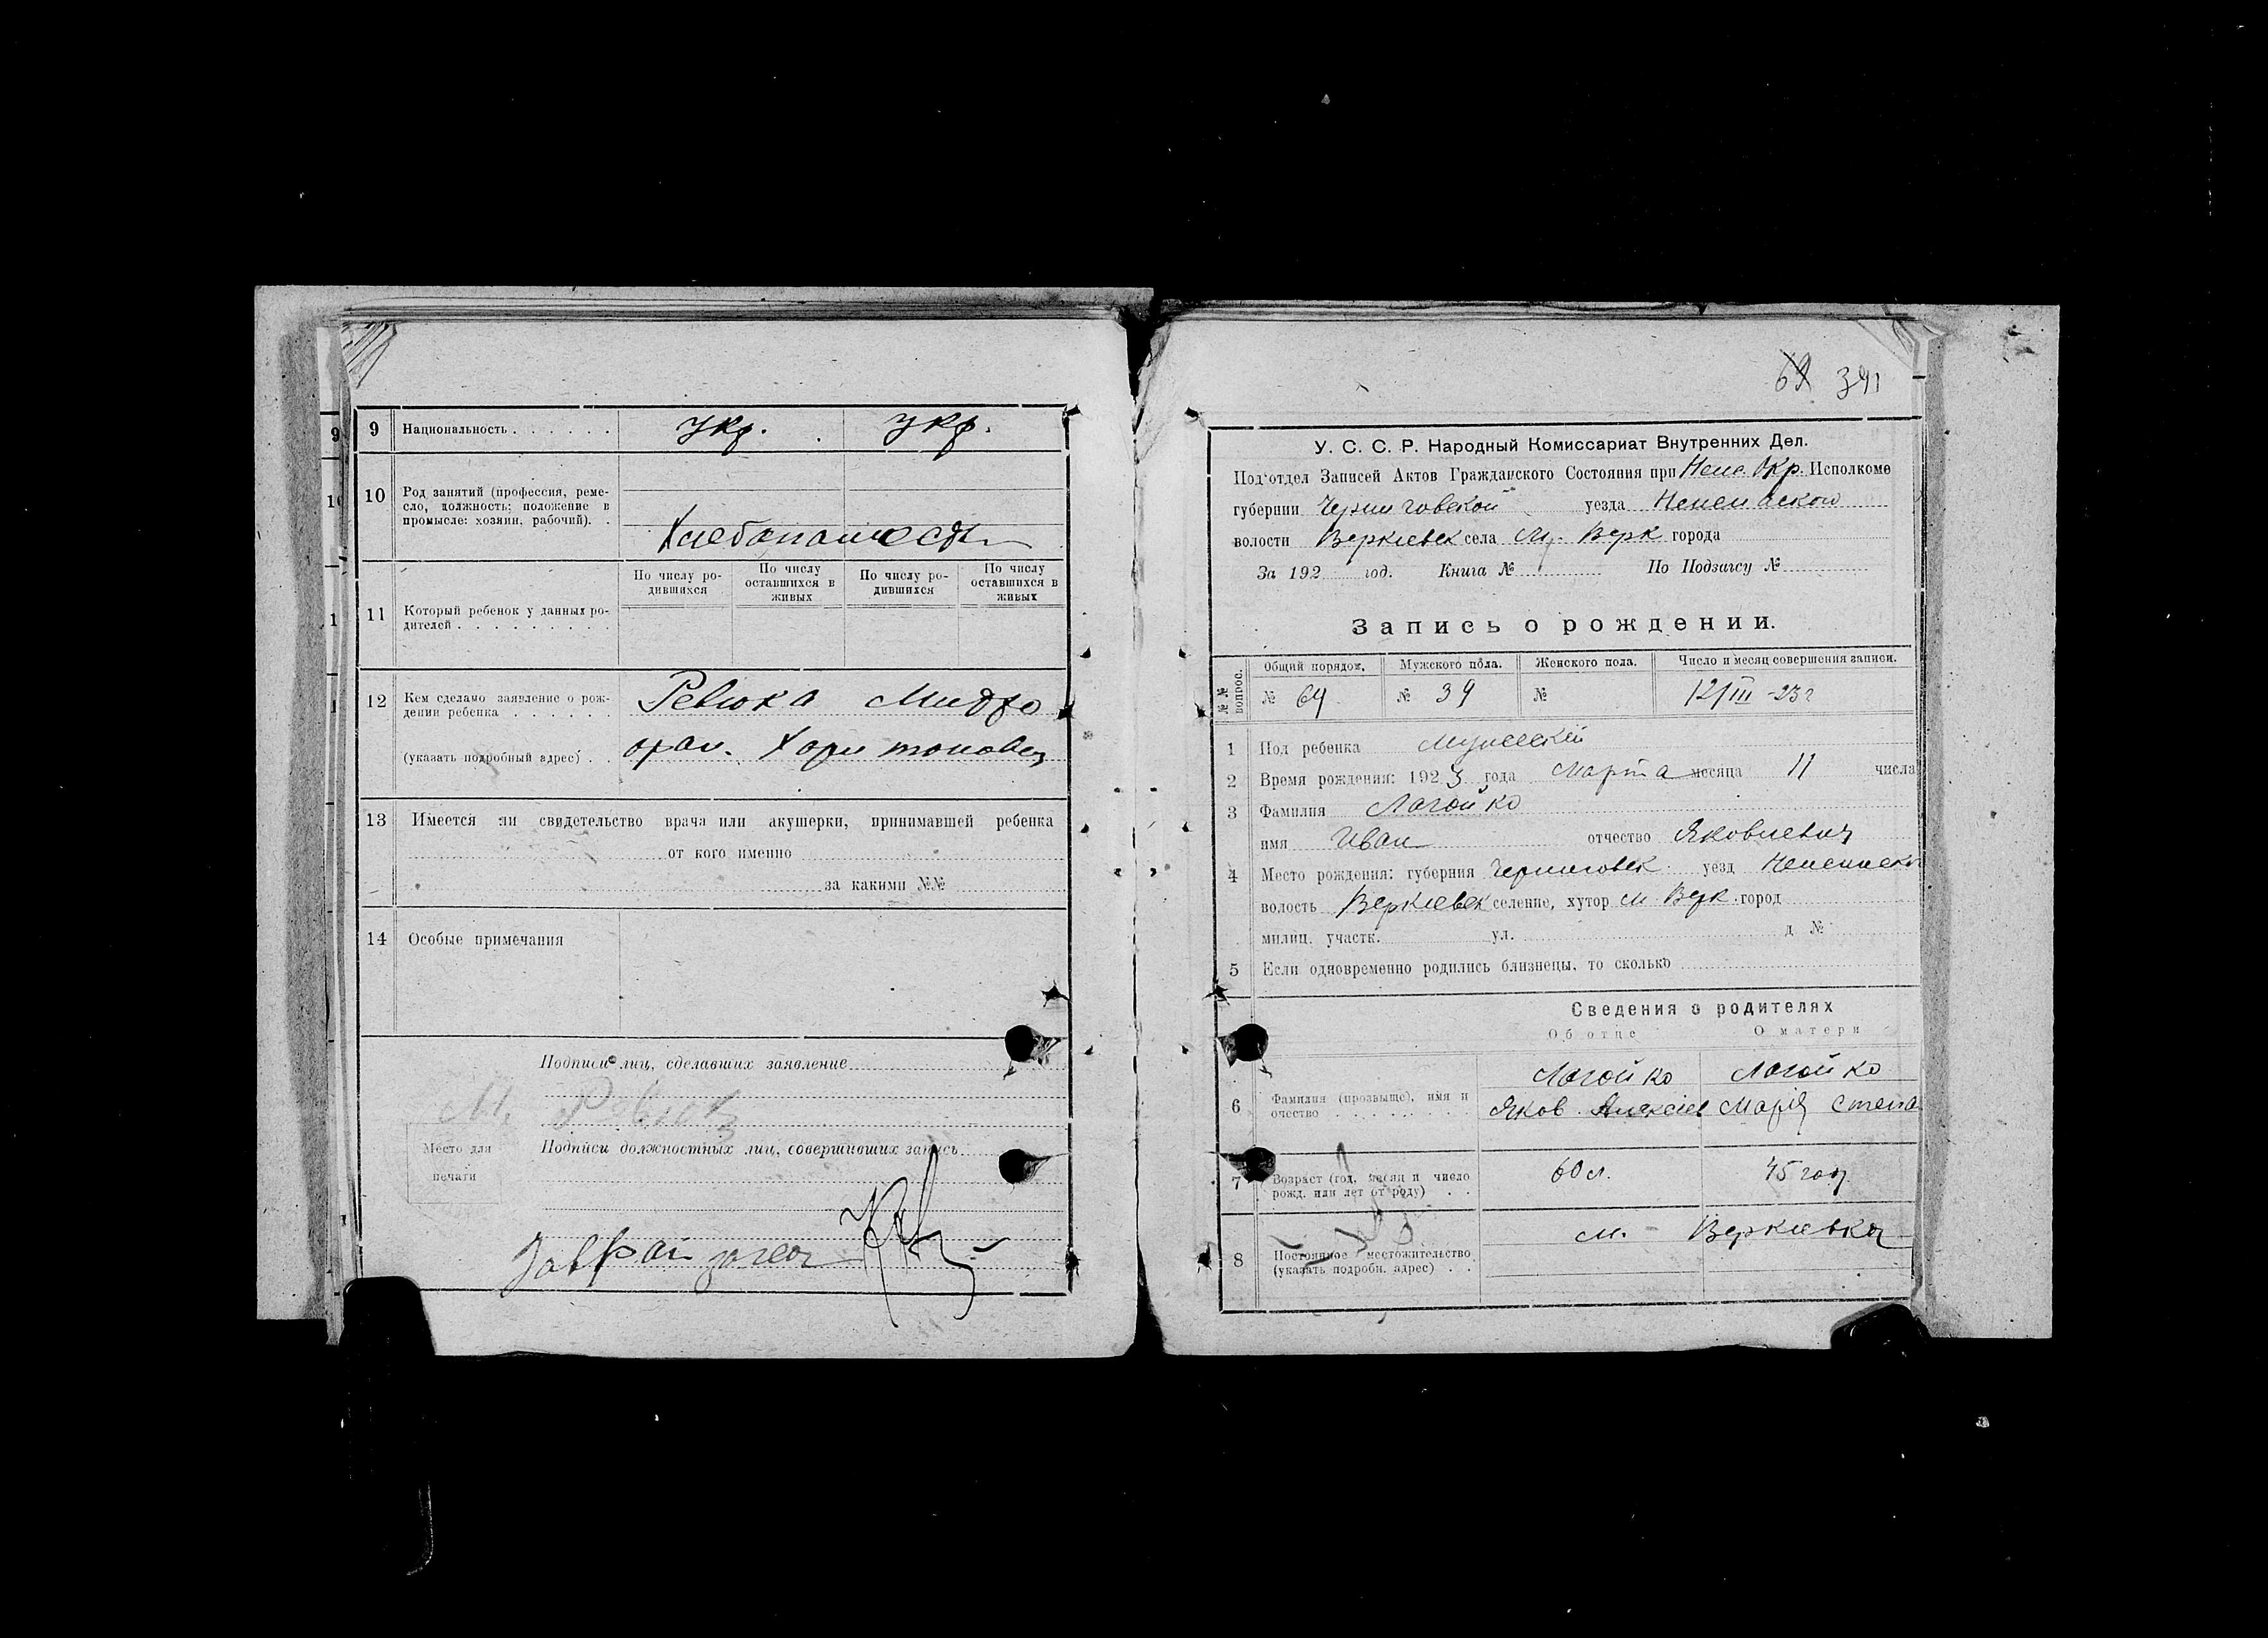 9 Национальность . . . . . . укр. укр.
10 Род занятий (профессия, реме-
сло, должность; положение в
промысле: хозяин, рабочий). .
Хлебопашест
По числу ро-
дившихся
По числу
оставшихся в
живых
По числу ро-
дившихся
По числу
оставшихся в
живых
11 Который ребенок у данных ро-
дителей . . . . . . . . .
12 Кем сделано заявление о рож-
дении ребенка . . . . . . Ревюка
(указать подробный адрес) . . Харитоновец
13 Имеется ли свидетельство врача или акушерки, принимавшей ребенка
от кого именно
за какими №№
14 Особые примечания
Подписи лиц, сделавших заявление
М. Ревюк
Место для
печати
Подписи должностных лиц, совершивших запись
Зав
69 391
У. С. С. Р. Народный Комиссариат Внутренних Дел.
Под'отдел Записей Актов Гражданского Состояния при Неж. Окр. Исполкоме
губернии Черниговской уезда Неженского
волости Веркиевск села М. Верк города
За 192 год. Книга № По Подзагсу №
Запись о рождении.
№№ вопрос.
Общий порядок. Мужского пола. Женского пола. Число и месяц совершения записи.
№ 69 № 39 № 12/III-23г
1 Пол ребенка Мужеский
2 Время рождения: 1923 года Марта месяца 11 числа
3 Фамилия Логойко
имя Иван отчество Яковлевич
4 Место рождения: губерния Черниговск уезд Неженск
волость Веркиевск селение, хутор м. Верк. город
милиц. участк. ул. д №
5 Если одновременно родились близнецы, то сколько
Сведения о родителях
Об отце О матери
Логойко Логойко
6 Фамилия (прозвыще), имя и
очество . . . . . . . . . Яков Алексiев Марiя Степа
7 Возраст (год, месяц и число
рожд. или лет от роду) . . 60 л. 45 год
8 Постоянное местожительство
(указать подробн. адрес) . . м. - Веркиевка